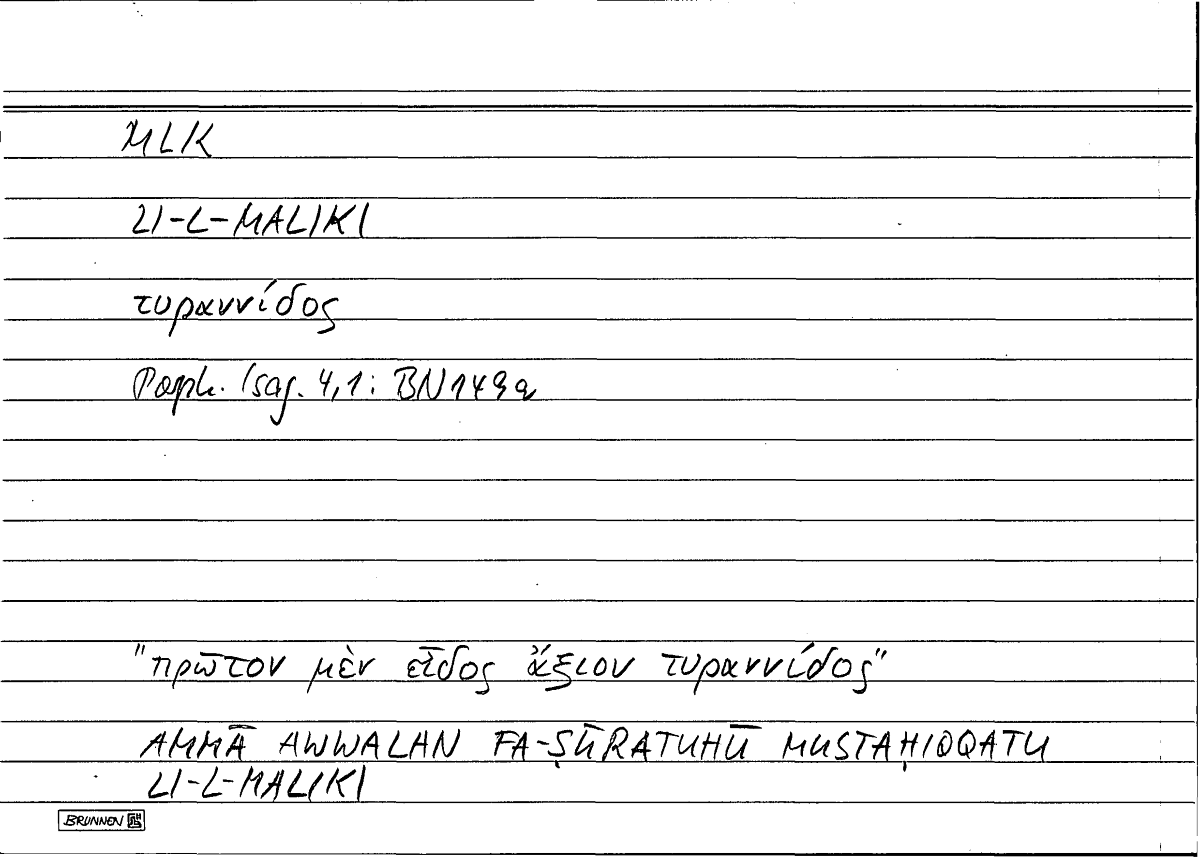 MLK
LI-L-MALIKI
τυραννίδος
Porph. Isag. 4,1: BN 149a
"πρῶτον μὲν εἶδος ἄξιον τυραννίδος"
AMMĀ AWWALAN FA-ṢŪRATUHŪ MUSTAḤIQQATU
LI-L-MALIKI
BRUNNEN